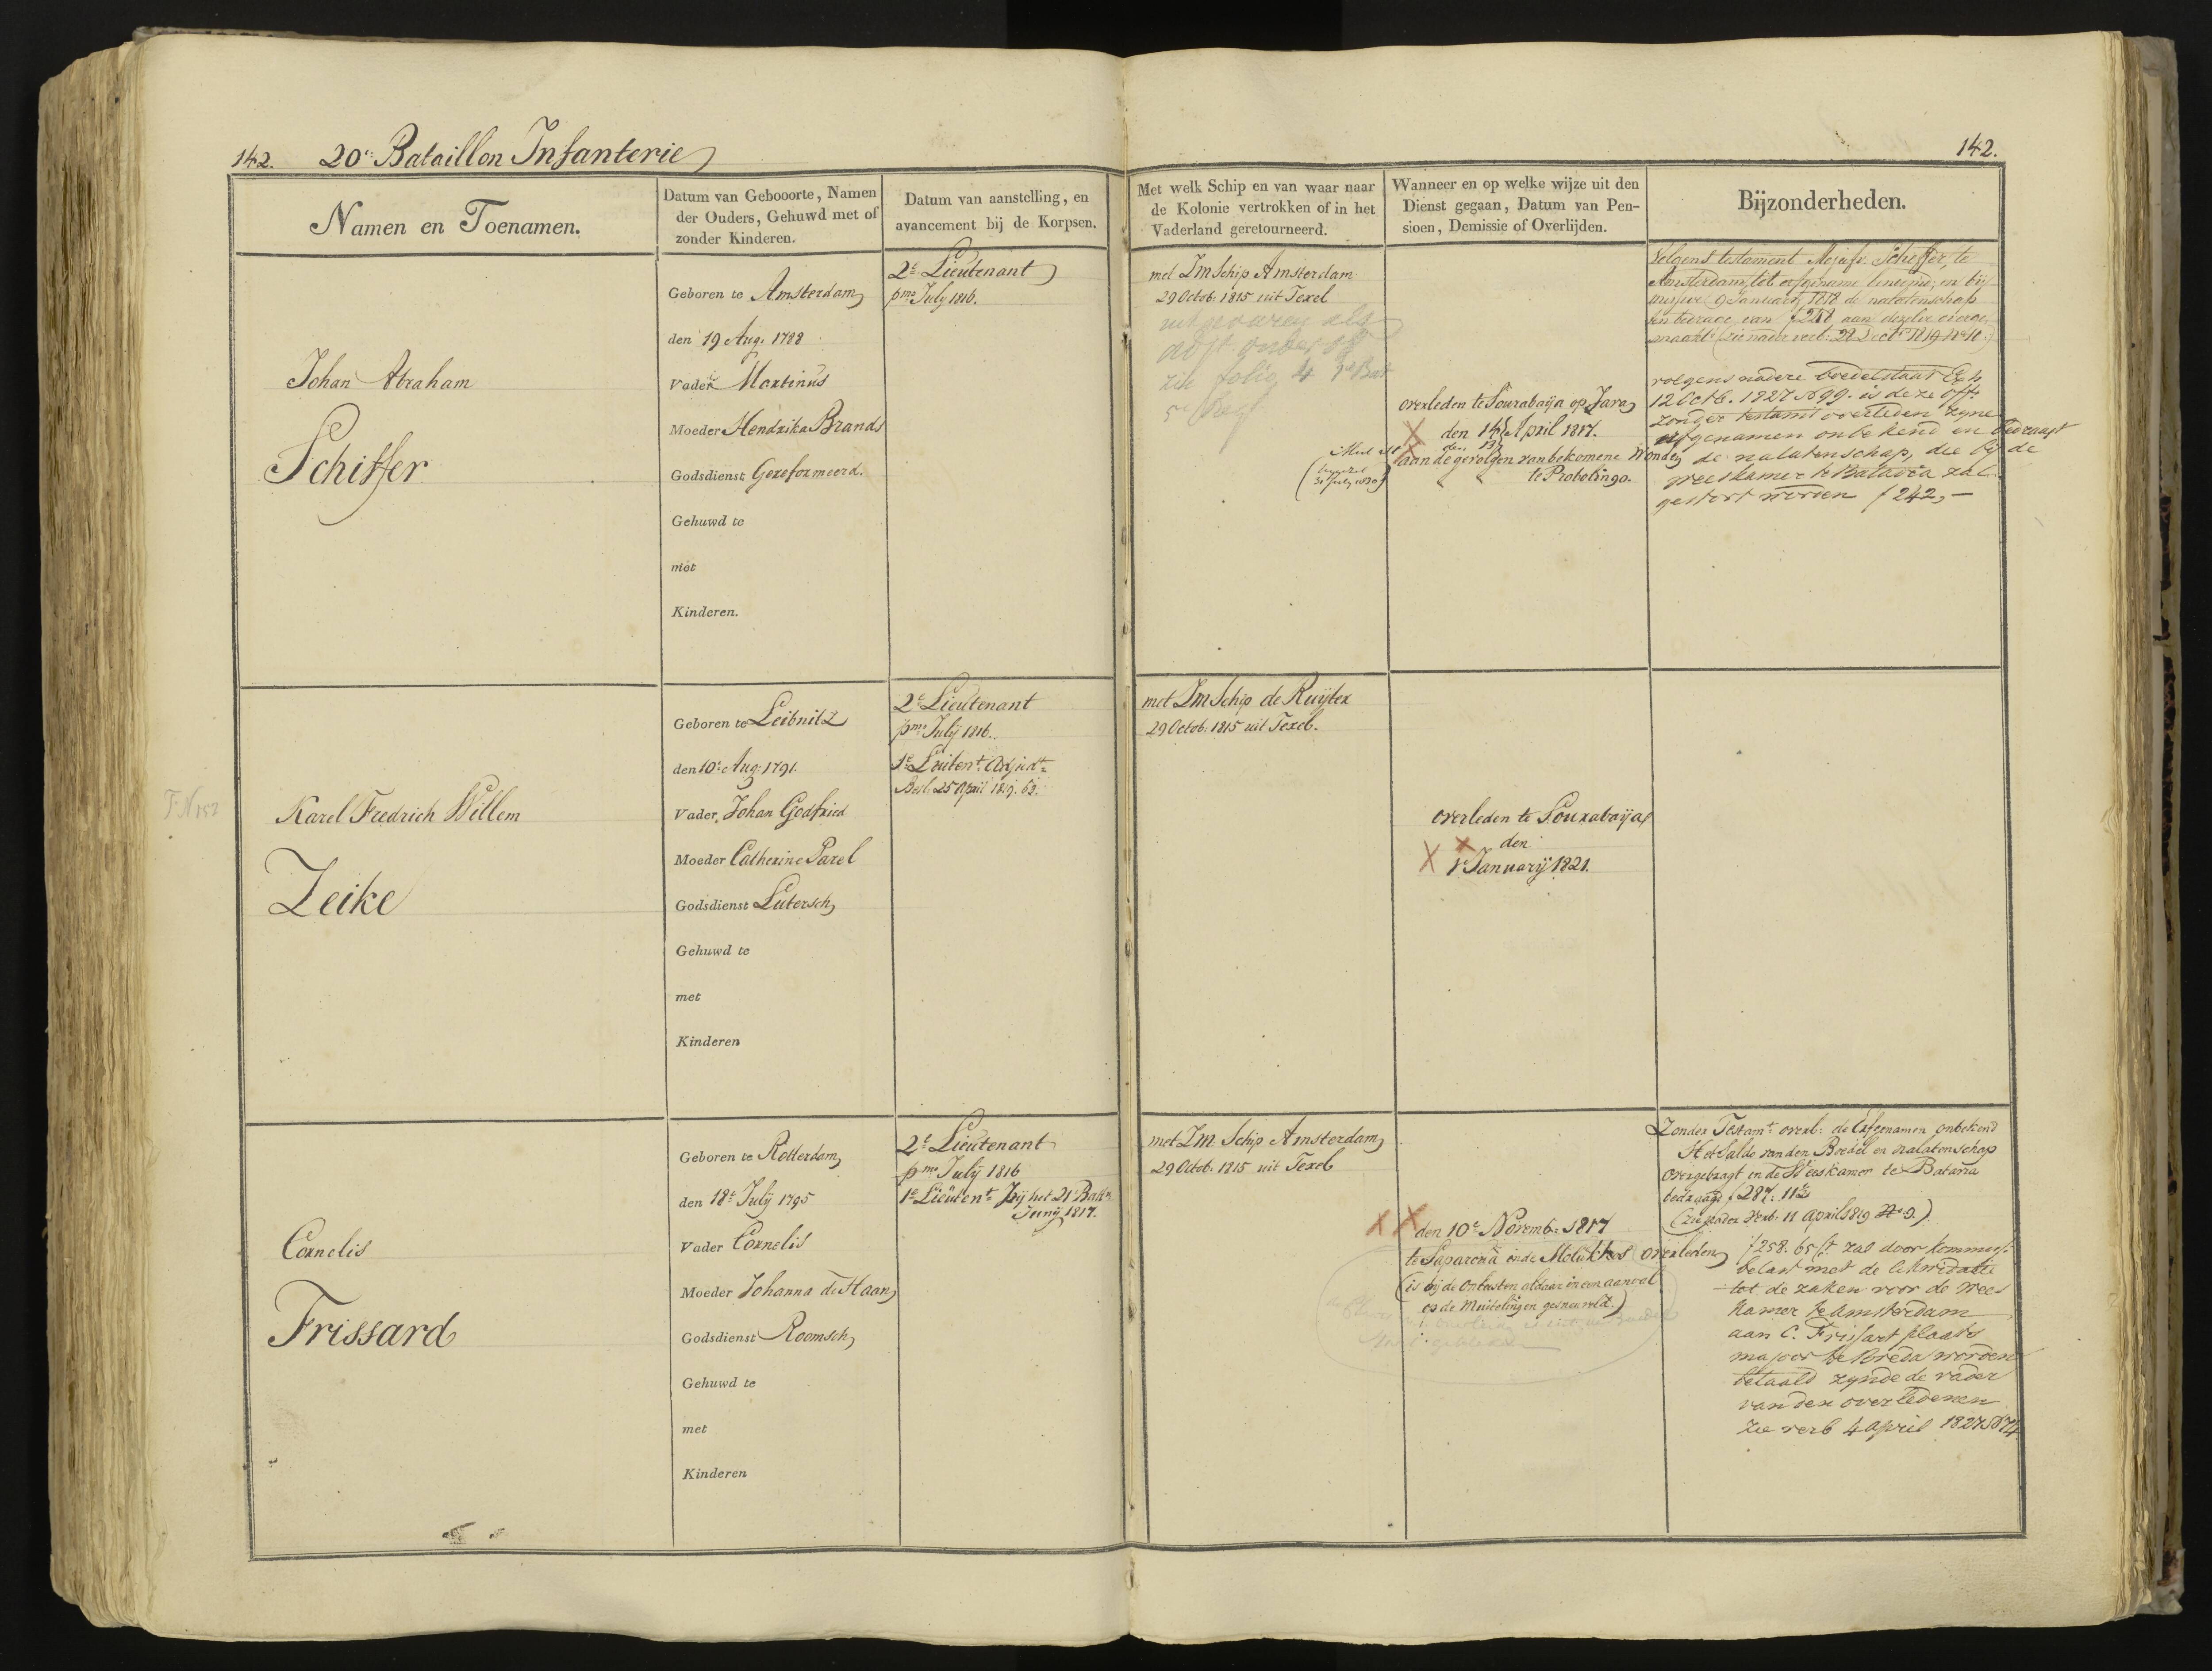 142. 20e Bataillon Infanterie
142.
Namen en Toenamen.
Datum van Gebooorte, Namen
der Ouders, Gehuwd met of
zonder Kinderen.
Datum van aanstelling, en
avancement bij de Korpsen.
Met welk Schip en van waar naar
de Kolonie vertrokken of in het
Vaderland geretourneerd.
Wanneer en op welke wijze uit den
Dienst gegaan, Datum van Pen-
sioen, Demissie of Overlijden.
Bijzonderheden.
Johan Abraham
Schiffer
Geboren te Amsterdam
den 19 Aug. 1788
Vader Martinus
Moeder Hendrika Brands
Godsdienst Gereformeerd.
Gehuwd te
met
Kinderen.
2e Lieutenant
pmo July 1816.
met Zm Schip Amsterdam
29 Octob: 1815 uit Texel
uitgevaren als
zie folio 4
overleden te Sourabaija op Java
den 14 April 1817.
aan de gevolgen van bekomene Wonden
te Probolingo.
31 July 1830
Volgens testament Mejufv. Scheffer, te
Amsterdam, tot erfgename benoemd, en bij
9 January 1818 de nalatenschap
van f 218 aan dezelve overge-
maakt (zie nader verb: 28 Octr 1819 No 10.)
volgens nadere boedelstaat Exh
12 Octb. 1827 No 99. is deze offr
zonder testamt overleden zyne
erfgenamen onbekend en bedraagt
de nalatenschap, die bij de
weeskamer te Batavia zal
gestort worden f 242,-
F. N 152
Karel Fredrich Willem
Zeike
Geboren te Leibnitz
den 10e Aug: 1791.
Vader, Johan Godfried
Moeder Catherine Parel
Godsdienst Lutersch
Gehuwd te
met
Kinderen
2e Lieutenant
pmo July 1816.
1e Luitent. Adjudt.
Besl. 25 April 1819. 63.
met Zm Schip de Ruyter
29 Octob: 1815 uit Texel.
overleden te Sourabaija
den
1 January 1821.
Cornelis
Frissard
Geboren te Rotterdam
den 18e July 1795
Vader Cornelis
Moeder Johanna de Haan
Godsdienst Roomsch
Gehuwd te
met
Kinderen
2e Lieutenant
pmo July 1816
1e Lieutent bij het 21e Battn
Juny 1817.
met Zm. Schip Amsterdam
29 Octob. 1815 uit Texel
den 10e Novemb: 1817
te Saparoua in de Molukkos overleden
(is bij de Onlusten aldaar in een aanval
op de Muitelingen gesneuveld.)
Zonder Testamt overl: de Erfgenamen onbekend
Het Saldo van den Boedel en nalatenschap
overgebragt in de Weeskamer te Batavia
bedraagt f 287: 11½
(zie nader Verb: 11 April 1819 No 9.)
f 258. 65 zal door kommiss.
belast met de likwidatie
tot de zaken voor de wees
kamer te Amsterdam
aan C. Frissart plaats
majoor te Breda worden
betaald zynde de vader
van den overledenen
zie verb 4 April 1827 No 74